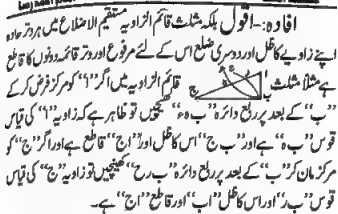 افادہ:۔ اقول بلکہ مثلث قائم الزاویہ مستقیم الاضلاع میں ہر وتر حادہ
اپنے زاویے کا ظل اور دوسری ضلع اس کے لئے مرفوع اور وتر قائمہ دونوں کا قاطع
ہے مثلاً مثلث قائم الزاویہ میں اگر "ا" کو مرکز فرض کر کے
"ب" کے بعد پر ربع دائرہ "ب ہ ء" کھینچیں تو ظاہر ہے کہ زاویہ "ا" کی قیاس
قوس "ب ہ" ہے اور "ب ج" اس کا ظل اور "ا ج" قاطع ہے اور اگر "ج" کو
مرکز مان کر "ب" کے بعد پر ربع دائرہ "ب ر ح" کھینچیں تو زاویہ "ج" کی قیاس
قوس "ب ر" اور اس کا ظل "ا ب" اور قاطع "ا ج" ہے۔